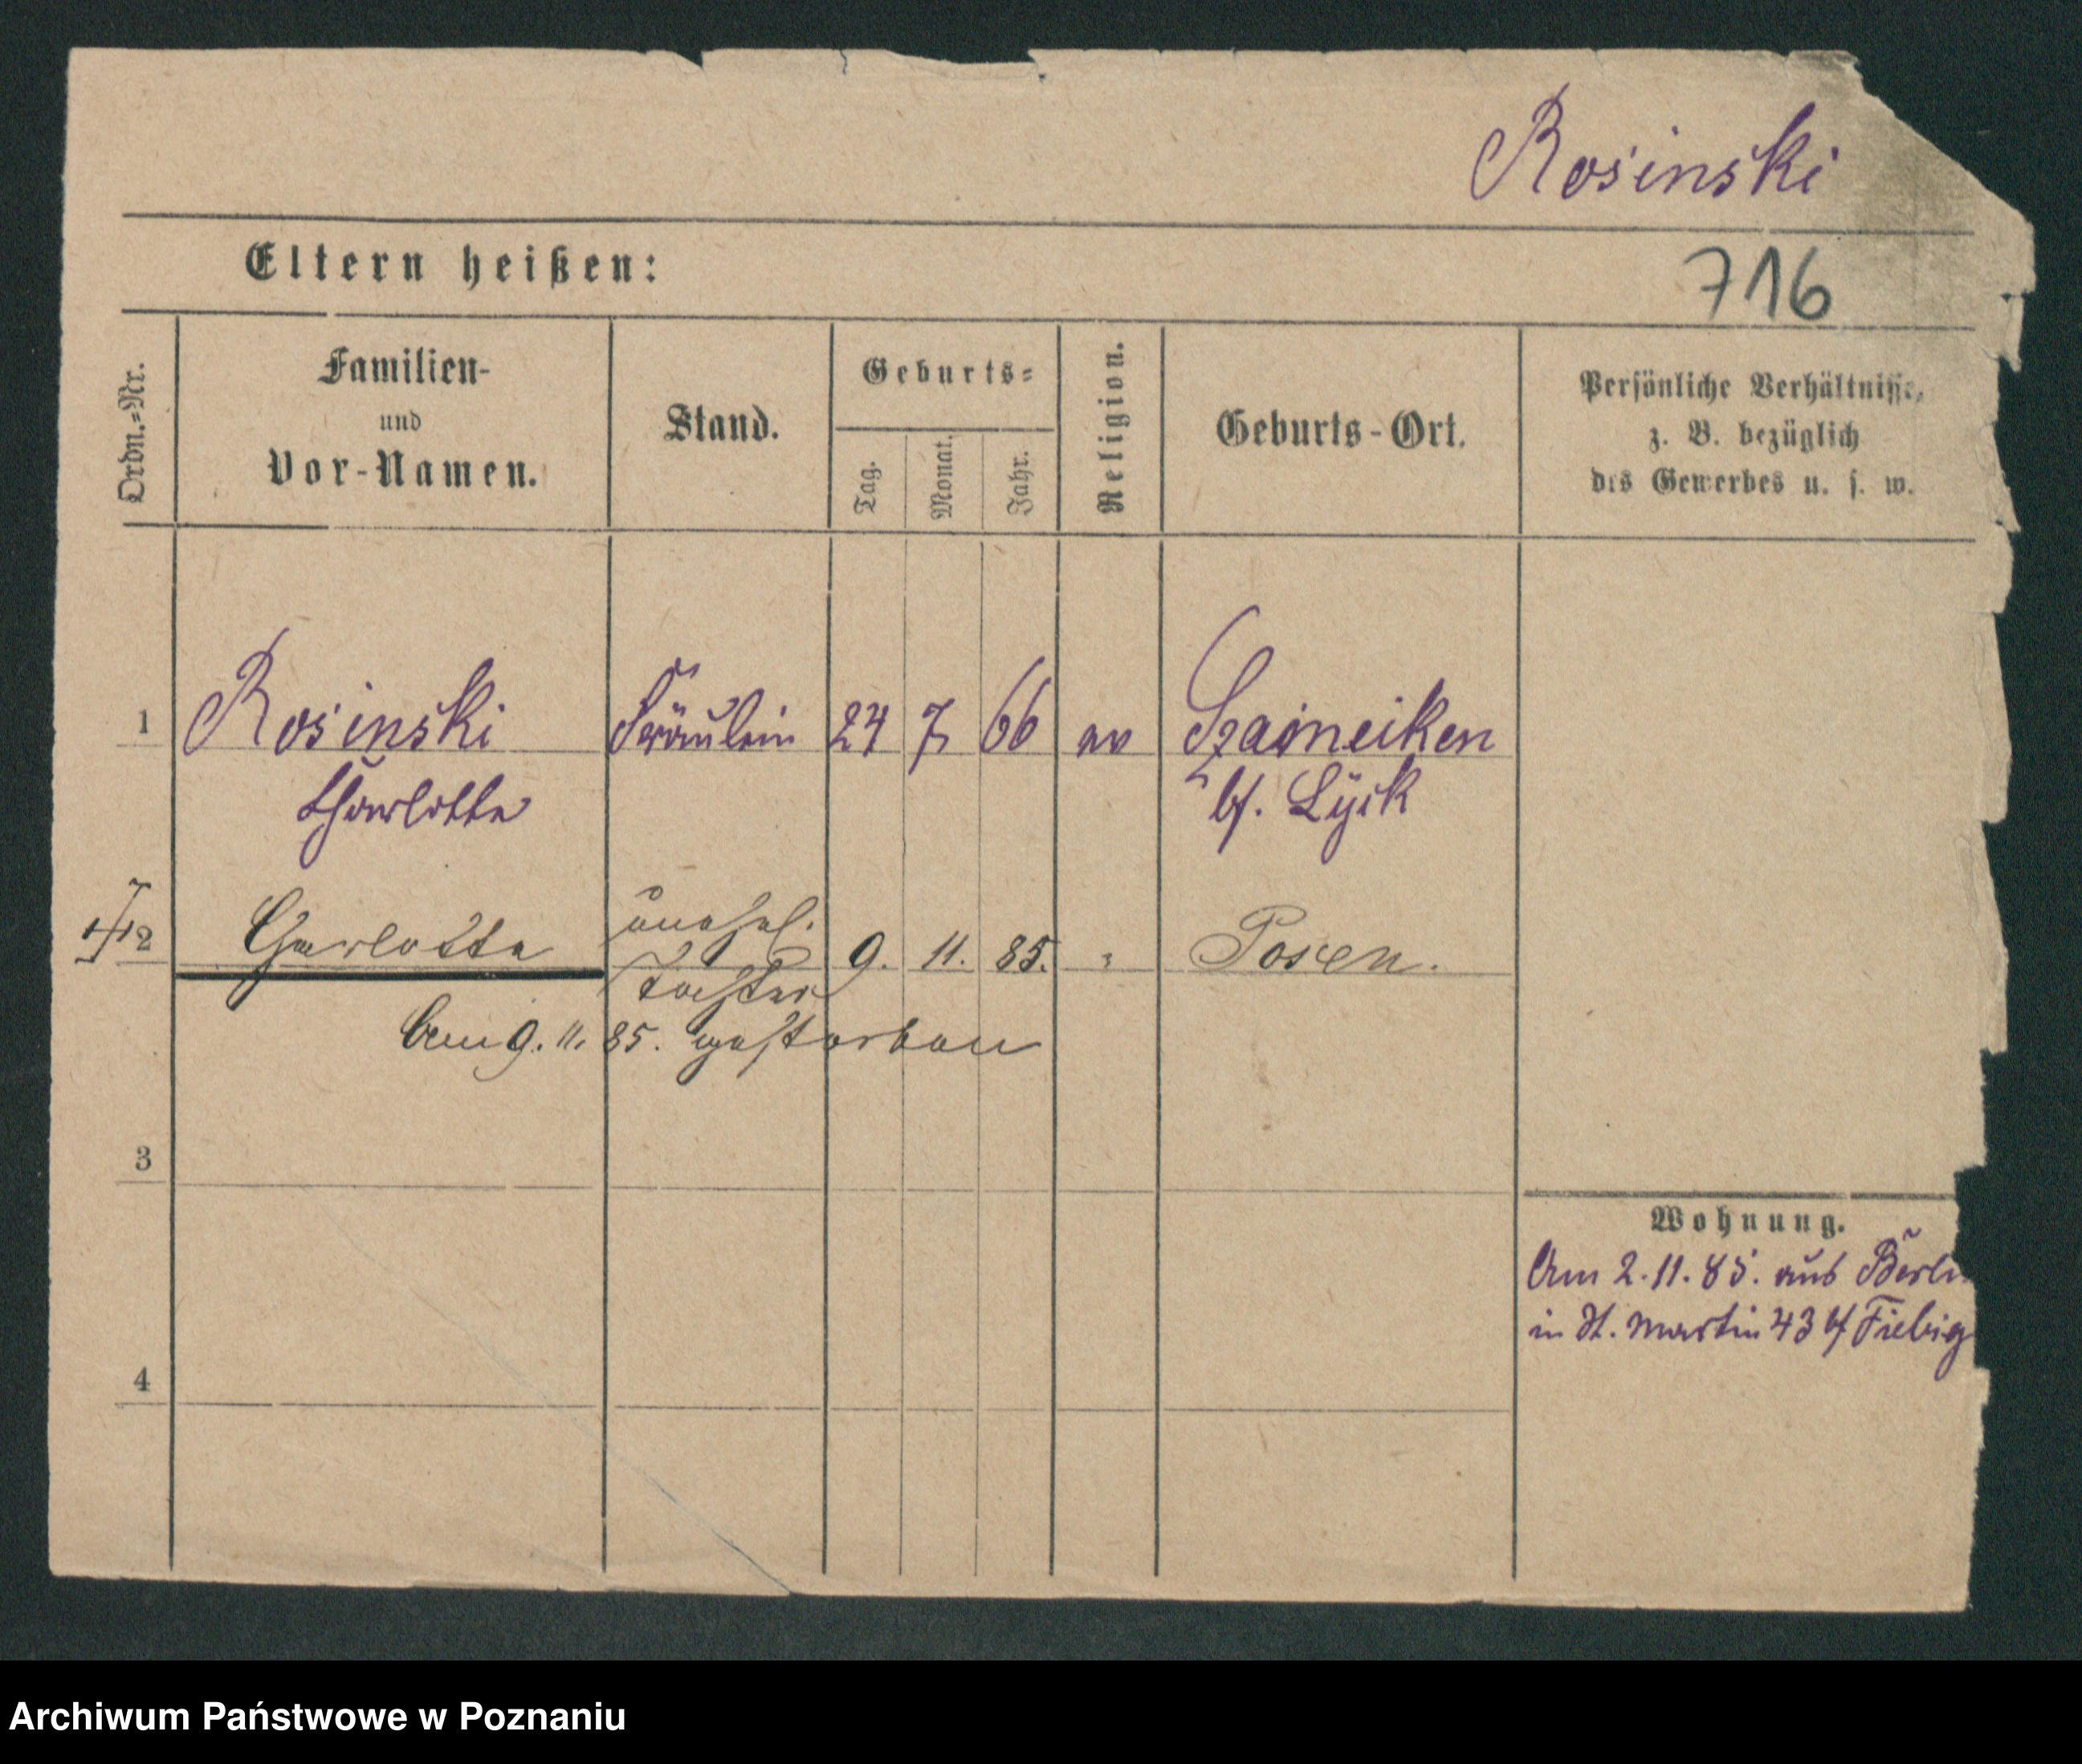 Rosinski
Eltern heißen:
716
Ordn.=Nr.
Familien-
und
Vor-Namen.
Stand.
Geburts=
Tag.
Monat.
Jahr.
Religion.
Geburts-Ort.
Persönliche Verhältnisse,
z. B. bezüglich
des Gewerbes u. s. w.
1 Rosinski Fräulein 24 7 66 ev
Charlotte bf. Lyck
2 Charlotte unehel. 9. 11. 85. " Posen.
Tochter
am 9. 11. 85. gestorben
3
Wohnung.
Am 2.11.85. aus Berlin
in St. Martin 43 bf Fiebig
4
Archiwum Państwowe w Poznaniu